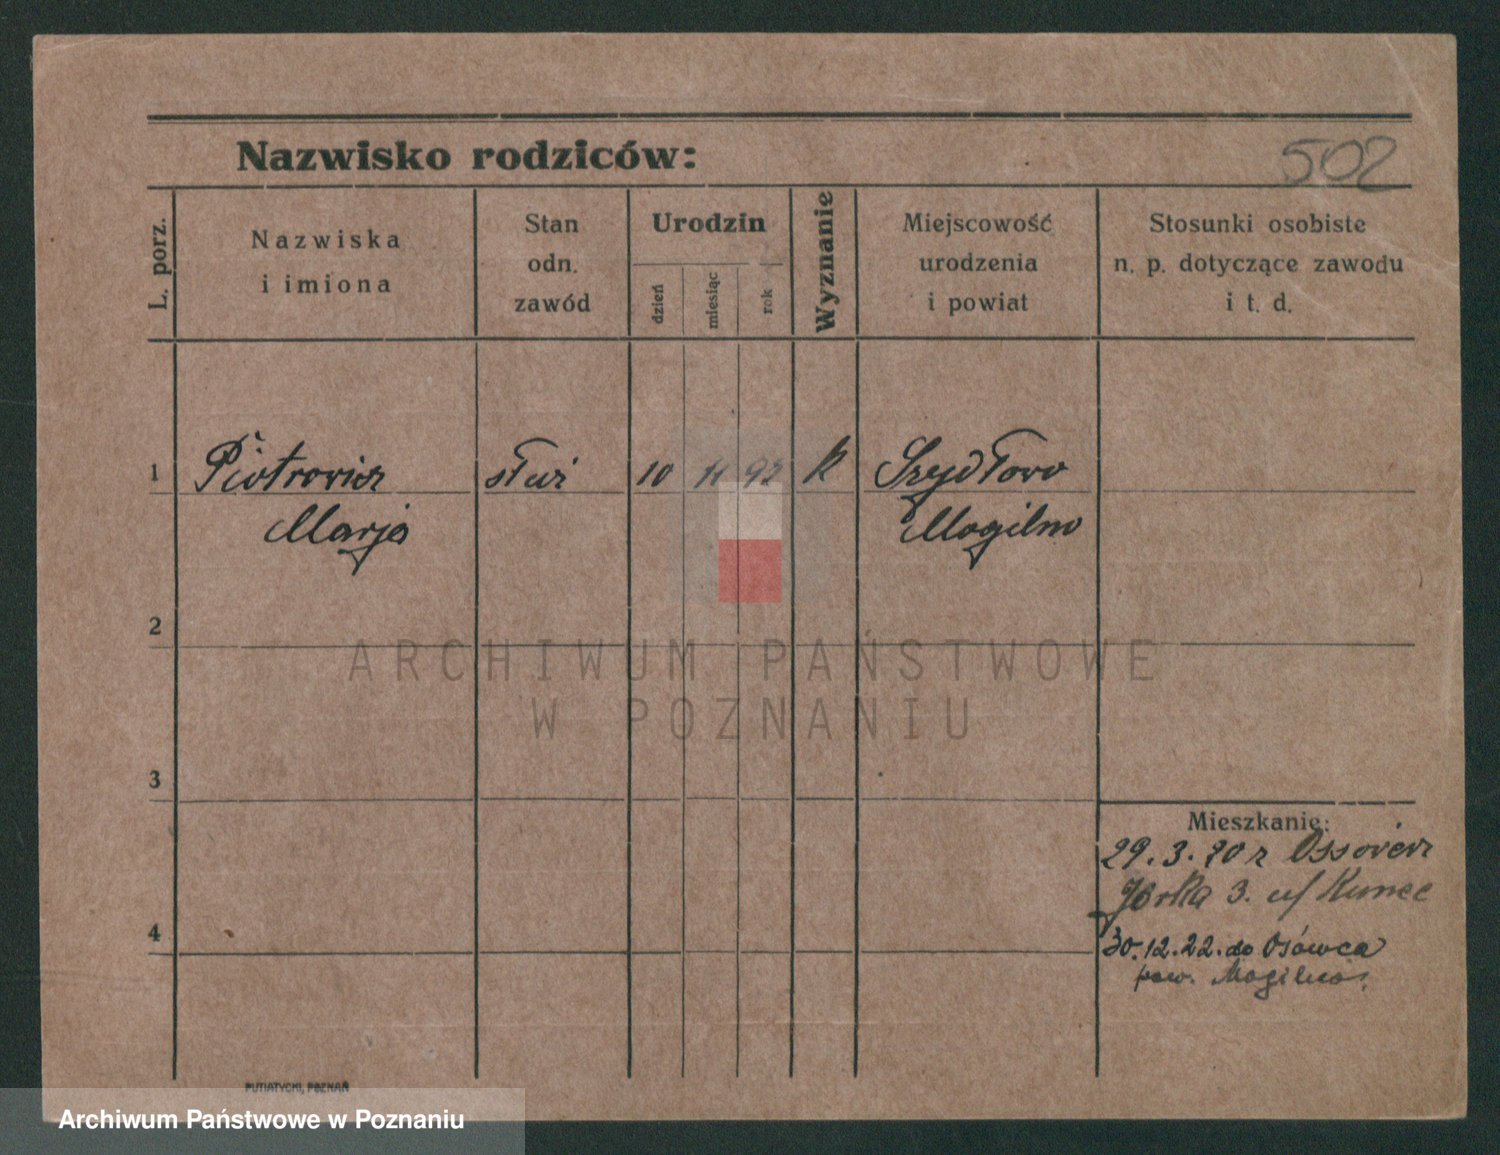 Nazwisko rodziców:
502
L. porz.
Nazwiska
i imiona
Stan
odn.
zawód
Urodzin
dzień
miesiąc
rok
Wyznanie
Miejscowość
urodzenia
i powiat
Stosunki osobiste
n. p. dotyczące zawodu
i t. d.
1
Piotrowicz
służ
10
11
92
k
Szydłowo
Marja
Mogilno
2
ARCHIWUM PAŃSTWOWE
W POZNANIU
3
Mieszkanie:
29. 3. z
3. u/
4
30.12.22. do Osówca
pow. Mogilno.
PUTIATYCKI, POZNAŃ
Archiwum Państwowe w Poznaniu